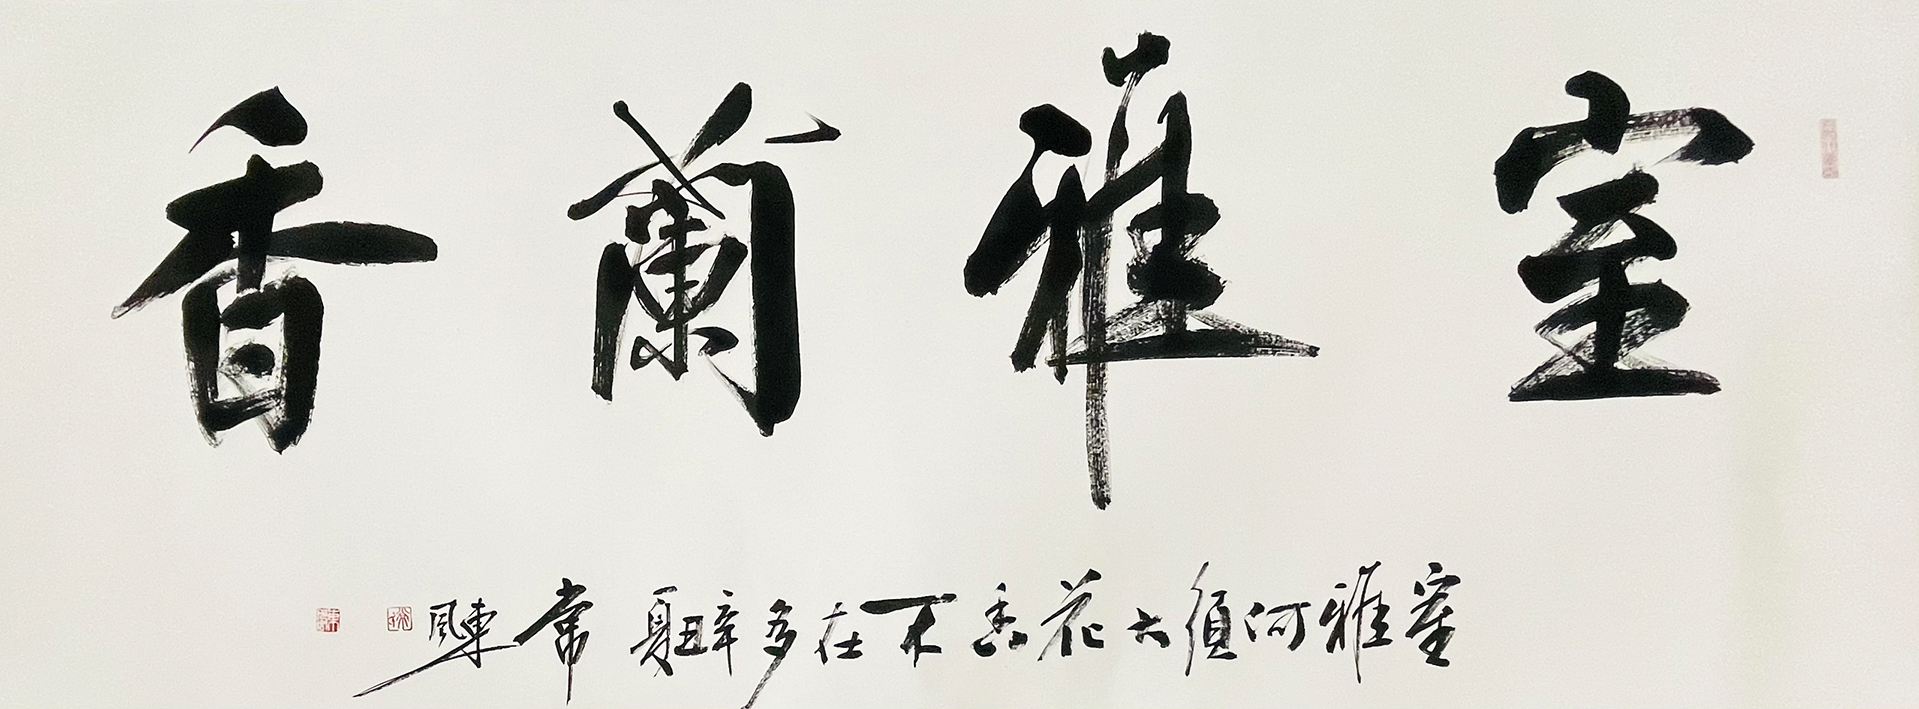 室雅蘭香
室雅何須大花香不在多辛丑夏常東風